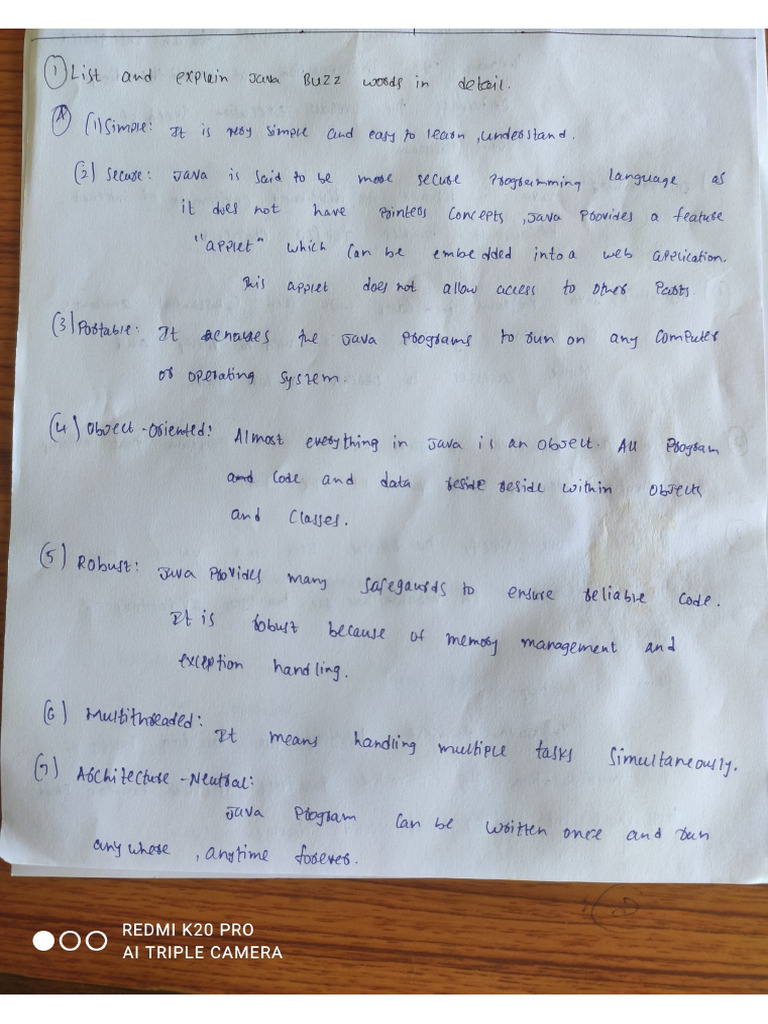 ① List and explain Java Buzz words in detail.
Ⓐ (1) Simple: It is very simple and easy to learn, understand.
(2) Secure: Java is said to be more secure programming language as
it does not have pointers concepts, Java provides a feature
"applet" which can be embedded into a web application.
This applet does not allow access to other parts.
(3) Portable: It the Java programs to run on any computer
or operating system.
(4) Object-oriented: Almost everything in Java is an object. All program
and code and data reside reside within objects
and classes.
(5) Robust: Java provides many safegaurds to ensure reliable code.
It is robust because of memory management and
exception handling.
(6) Multithreaded:
It means handling multiple tasks simultaneously.
(7) Architecture-Neutral:
Java program can be written once and run
anywhere, anytime forever.
REDMI K20 PRO
AI TRIPLE CAMERA